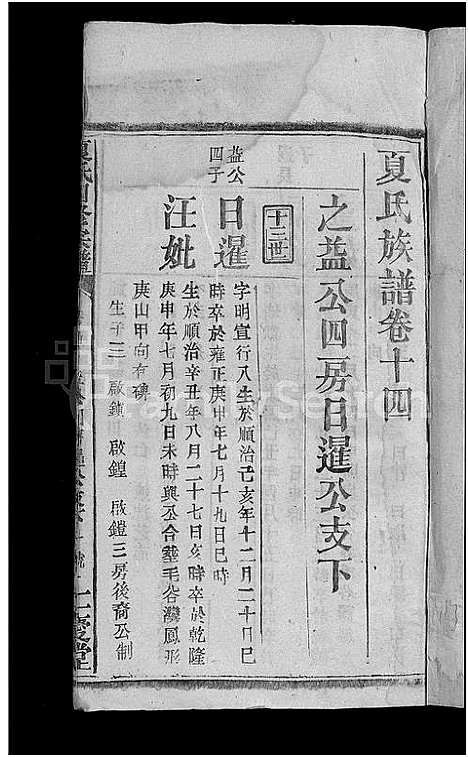 夏氏族譜卷十四
之益公四房日暹公支下
十三世
益公四子
日暹
字明宣行八生於順治己亥年十二月二十日巳
時卒於雍正庚申年七月十九日巳時
汪妣
生於順治辛丑年八月二十七日亥時卒於乾隆
庚申年七月初九日未時與公合塟毛谷灣鳳形
庚山甲向有碑
生子三 啟鎖 啟鍠 啟鎧三房後裔公制
FamilySearch